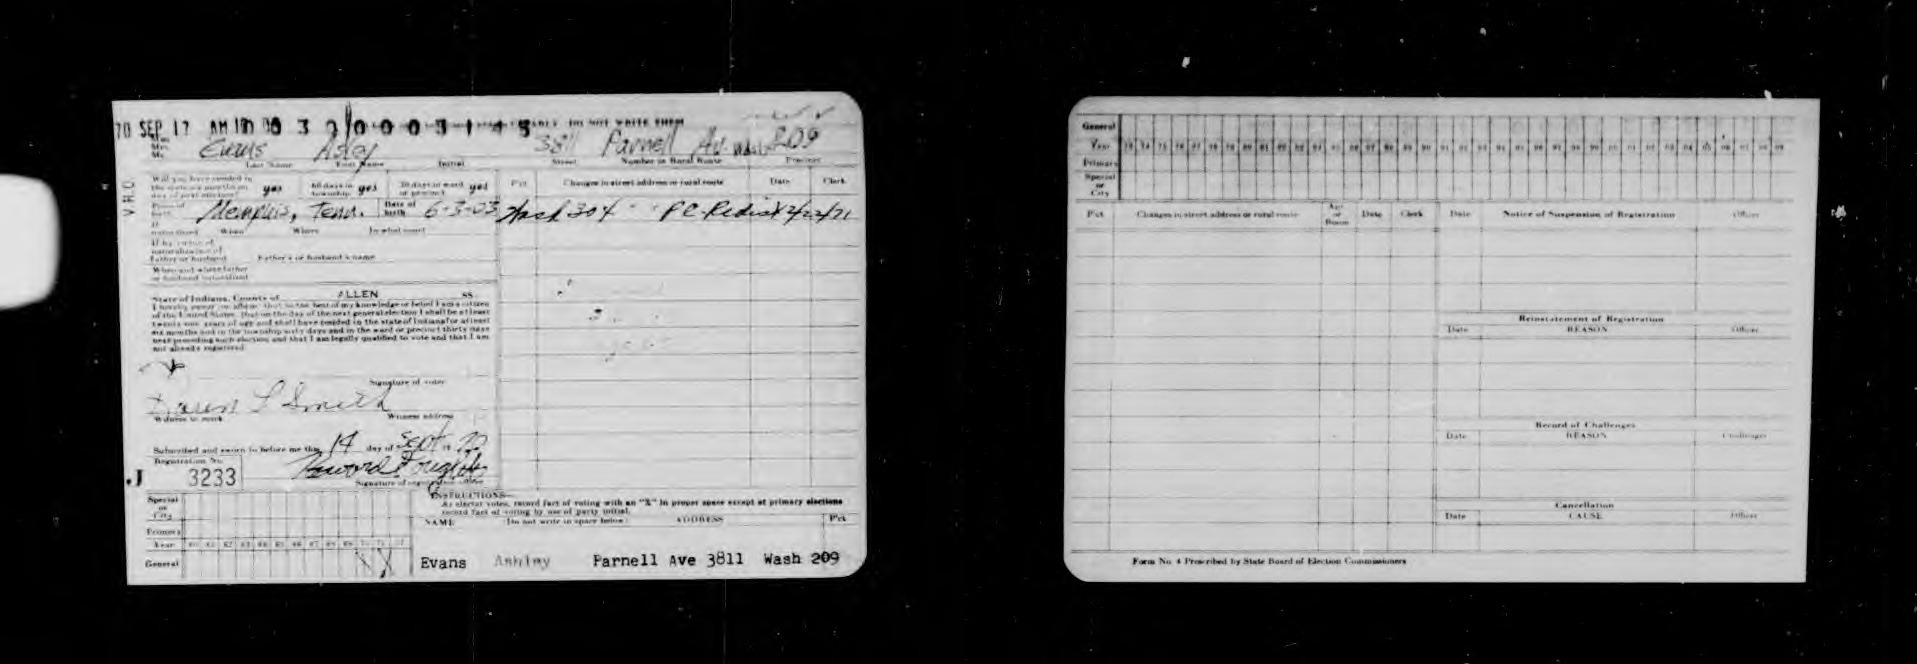 70 SEP 17 AM 10 00 3 2 0 0 0 3 1 4 5 DO NOT WRITE THERE
Mrs. Evans Asley 3811 Parnell Av. Wash 209
Last Name First Name Initial Street Number or Rural Route Precinct
V.R.O.
Will you have resided in the state six months on day of next election? yes 60 days in township yes 30 days in ward or precinct yes
Pct. Changes in street address or rural route Date Clerk
Place of birth Memphis, Tenn. Date of birth 6-3-03 Wash 304 PC-Redist 12/22/71
If naturalized When Where In what court
If by virtue of naturalization of Father or husband Father's or husband's name
When and where father or husband naturalized
State of Indiana, County of ALLEN SS.
I hereby swear or affirm that to the best of my knowledge or belief I am a citizen
of the United States, that on the day of the next general election I shall be at least
twenty-one years of age and shall have resided in the state of Indiana for at least
six months and in the township sixty days and in the ward or precinct thirty days
next preceding such election and that I am legally qualified to vote and that I am
not already registered.
Signature of voter
Karen L Smith
Witness to mark Witness address
Subscribed and sworn to before me this 14 day of Sept 19 70
Registration No.
J 3233 Howard Douglas
Signature of registration officer
Special or City
Primary
Year 60 61 62 63 64 65 66 67 68 69 70 71 72
General X
INSTRUCTIONS—
As elector votes, record fact of voting with an "X" in proper space except at primary elections
record fact of voting by use of party initial.
NAME (Do not write in space below) ADDRESS Pct.
Evans Ashley Parnell Ave 3811 Wash 209
General
Year 73 74 75 76 77 78 79 80 81 82 83 84 85 86 87 88 89 90 91 92 93 94 95 96 97 98 99 00 01 02 03 04 05 06 07 08 09
Primary
Special or City
Pct. Changes in street address or rural route Apt. or Room Date Clerk Date Notice of Suspension of Registration Officer
Reinstatement of Registration
Date REASON Officer
Record of Challenges
Date REASON Challenger
Cancellation
Date CAUSE Officer
Form No. 4 Prescribed by State Board of Election Commissioners